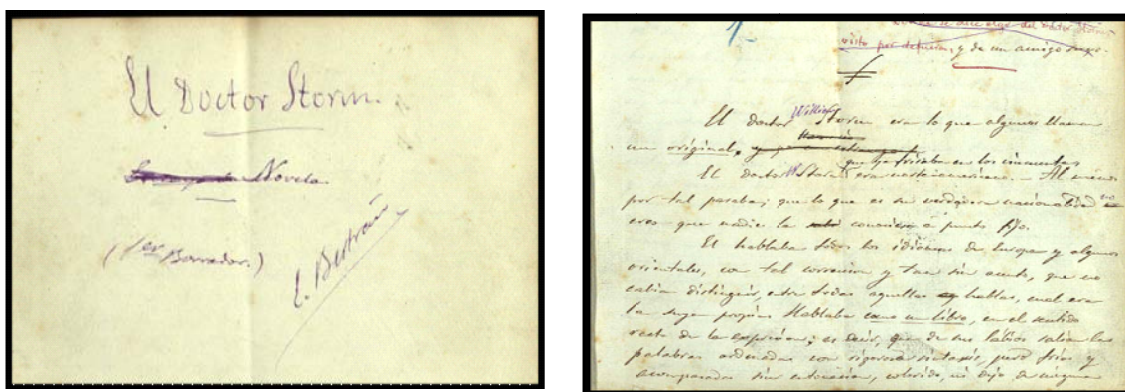 El Doctor Storm.
Novela.
(1er Borrador.)
E. Bertrán
1
visto por defuera, y de un amigo suyo.
William
El doctor Storm era lo que algunos llaman
un original,
que ya frisaba en los cincuenta
El doctor W. Storm era norteamericano. — Al menos
por tal pasaba; que lo que es su verdadera nacionalidad no
creo que nadie la conociera á punto fijo.
El hablaba todos los idiomas de Europa y algunos
orientales, con tal corrección y tan sin acento, que no
cabía distinguir, entre todas aquellas hablas, cual era
la suya propia. Hablaba como un libro, en el sentido
recto de la expresión; es decir, que de sus labios salían las
palabras ordenadas con rigorosa sintaxis, pero frías y
acompasadas sin entonación, colorido, ni dejo de ninguna